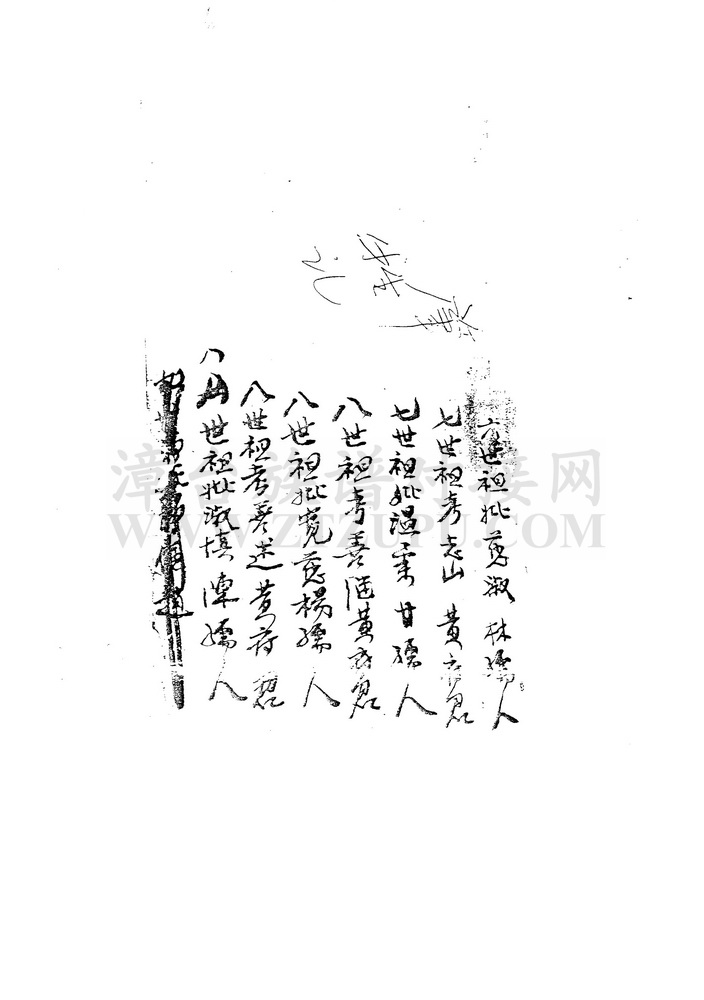 六世祖妣慈淑林孺人
七世祖考志山黃府君
七世祖妣温柔甘孺人
八世祖考善继黃府君
八世祖妣寬慈楊孺人
八世祖考善述黃府君
八世祖妣淑慎陳孺人
漳台族谱对接网
WWW.ZTZUPU.COM